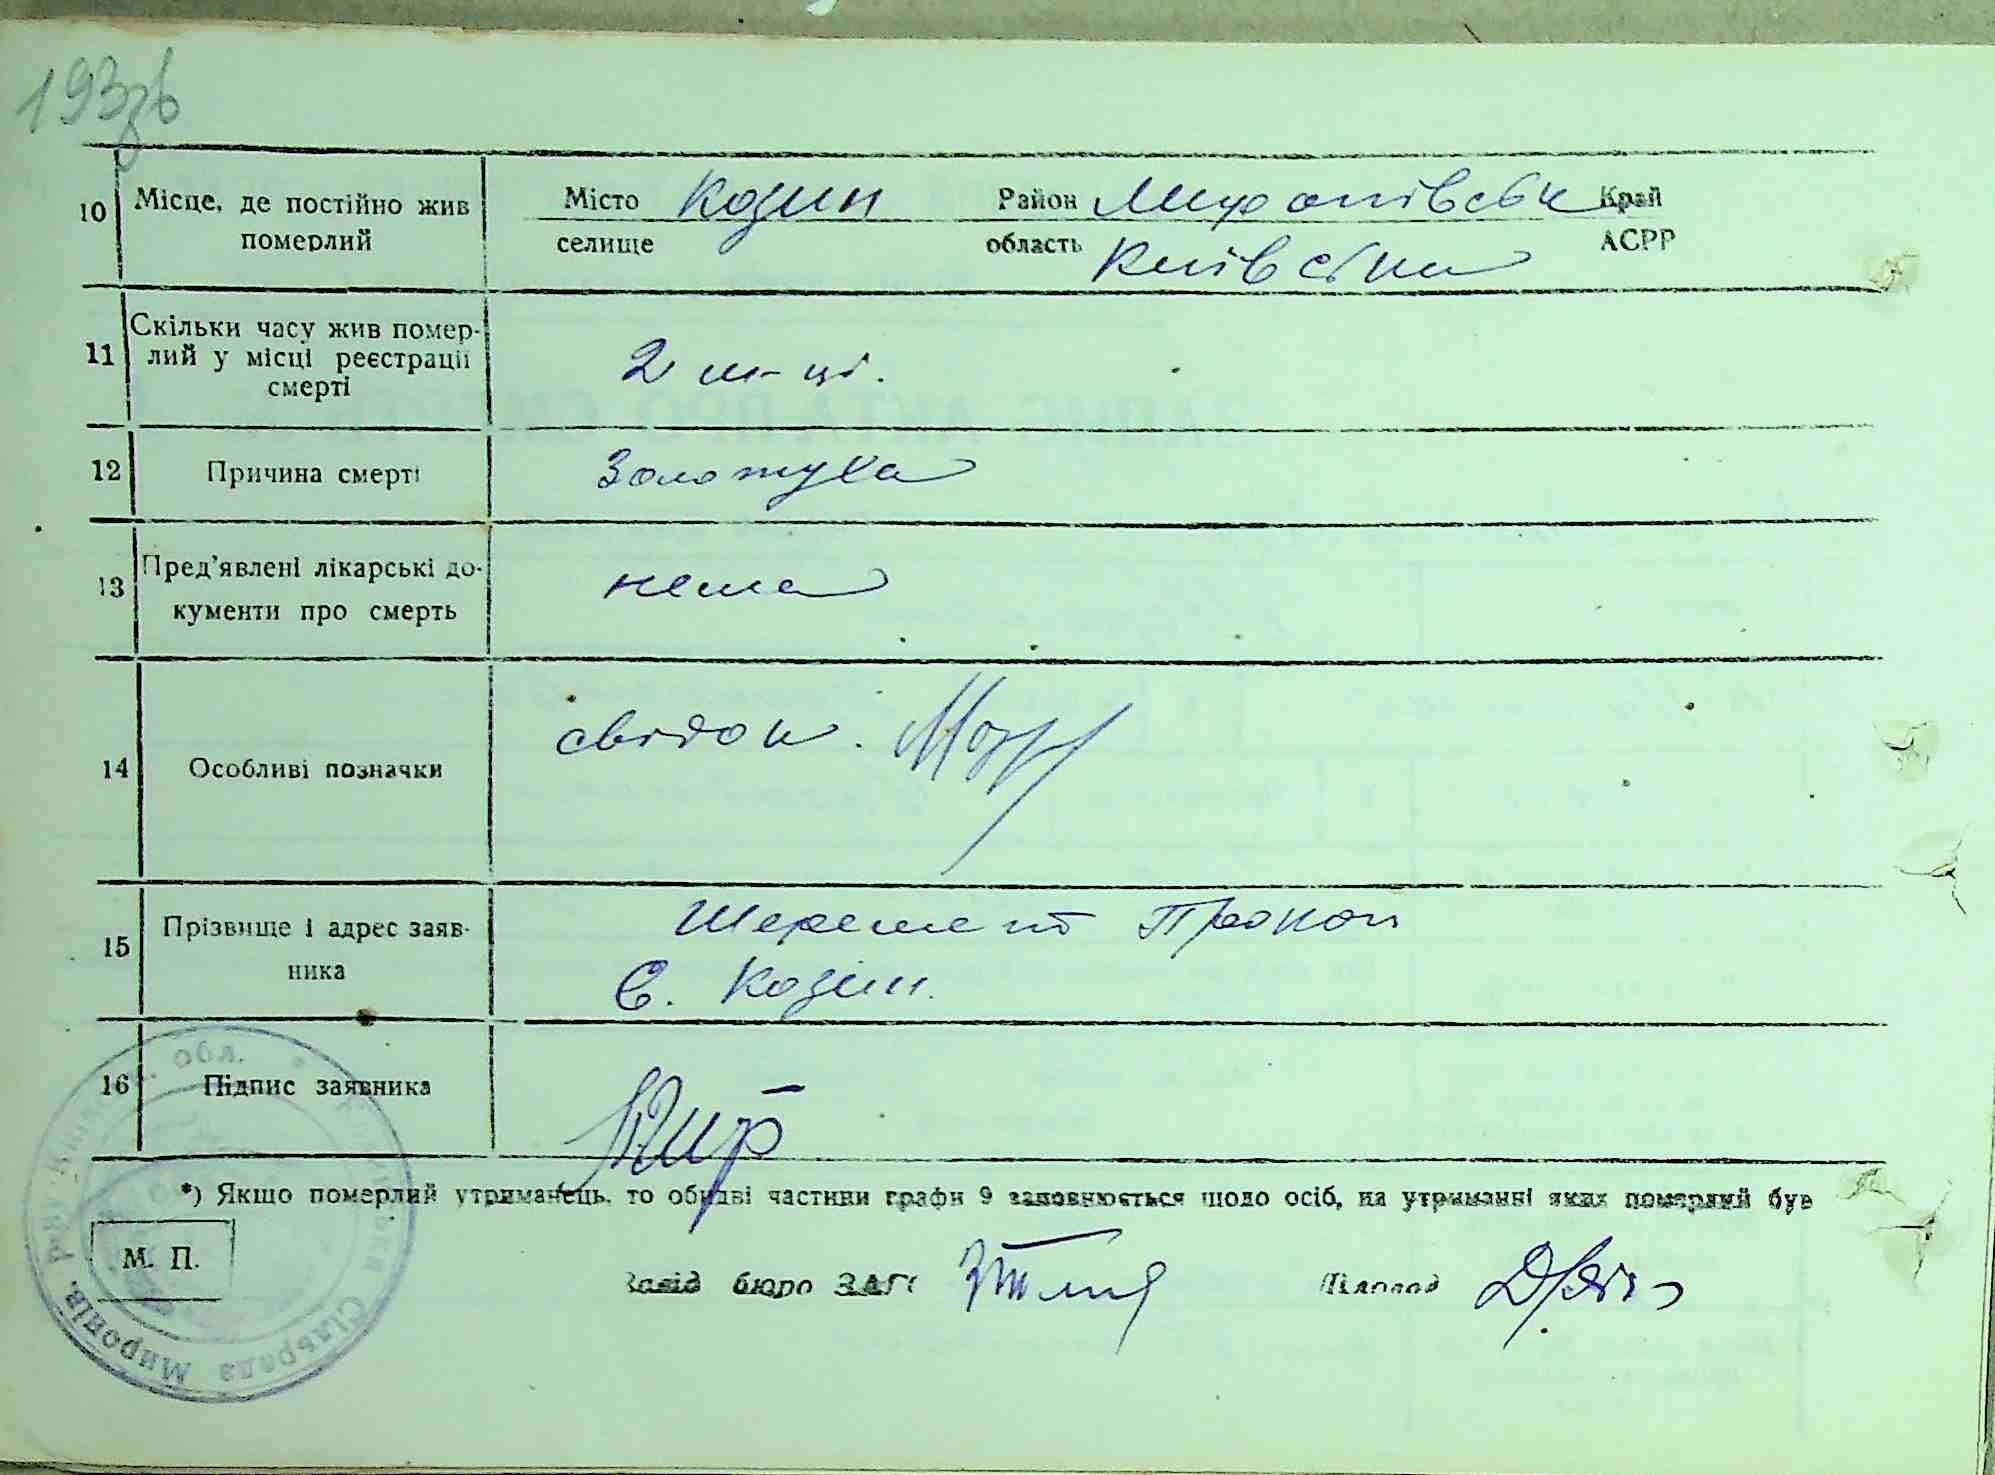 193зв
10 Місце, де постійно жив Місто Козин Район Миронівськ Край
померлий селище область Київська АСРР
Скільки часу жив помер-
11 лий у місці реєстрації 2 м-ці.
смерті
12 Причина смерті Золотуха
13 Пред'явлені лікарські до- нема
кументи про смерть
14 Особливі позначки свідок.
15 Прізвище і адрес заяв- Шеремет Прокоп
ника С. Козин.
16 Підпис заявника
*) Якщо померлий утриманець, то обидві частини графи 9 заповнюється щодо осіб, на утриманні яких померлий був
М. П.
Завід бюро ЗАГС Діловод
обл. Сільрада Миронів. р-ну